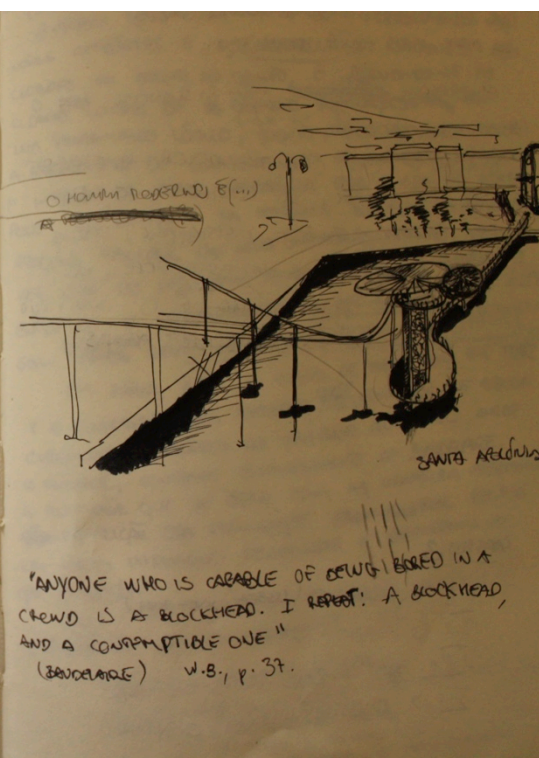 O HOMEM MODERNO É (...)
SANTA APOLÓNIA
"ANYONE WHO IS CAPABLE OF BEING BORED IN A
CROWD IS A BLOCKHEAD. I REPEAT: A BLOCKHEAD,
AND A CONTEMPTIBLE ONE"
(BAUDELAIRE) W.B., p. 37.